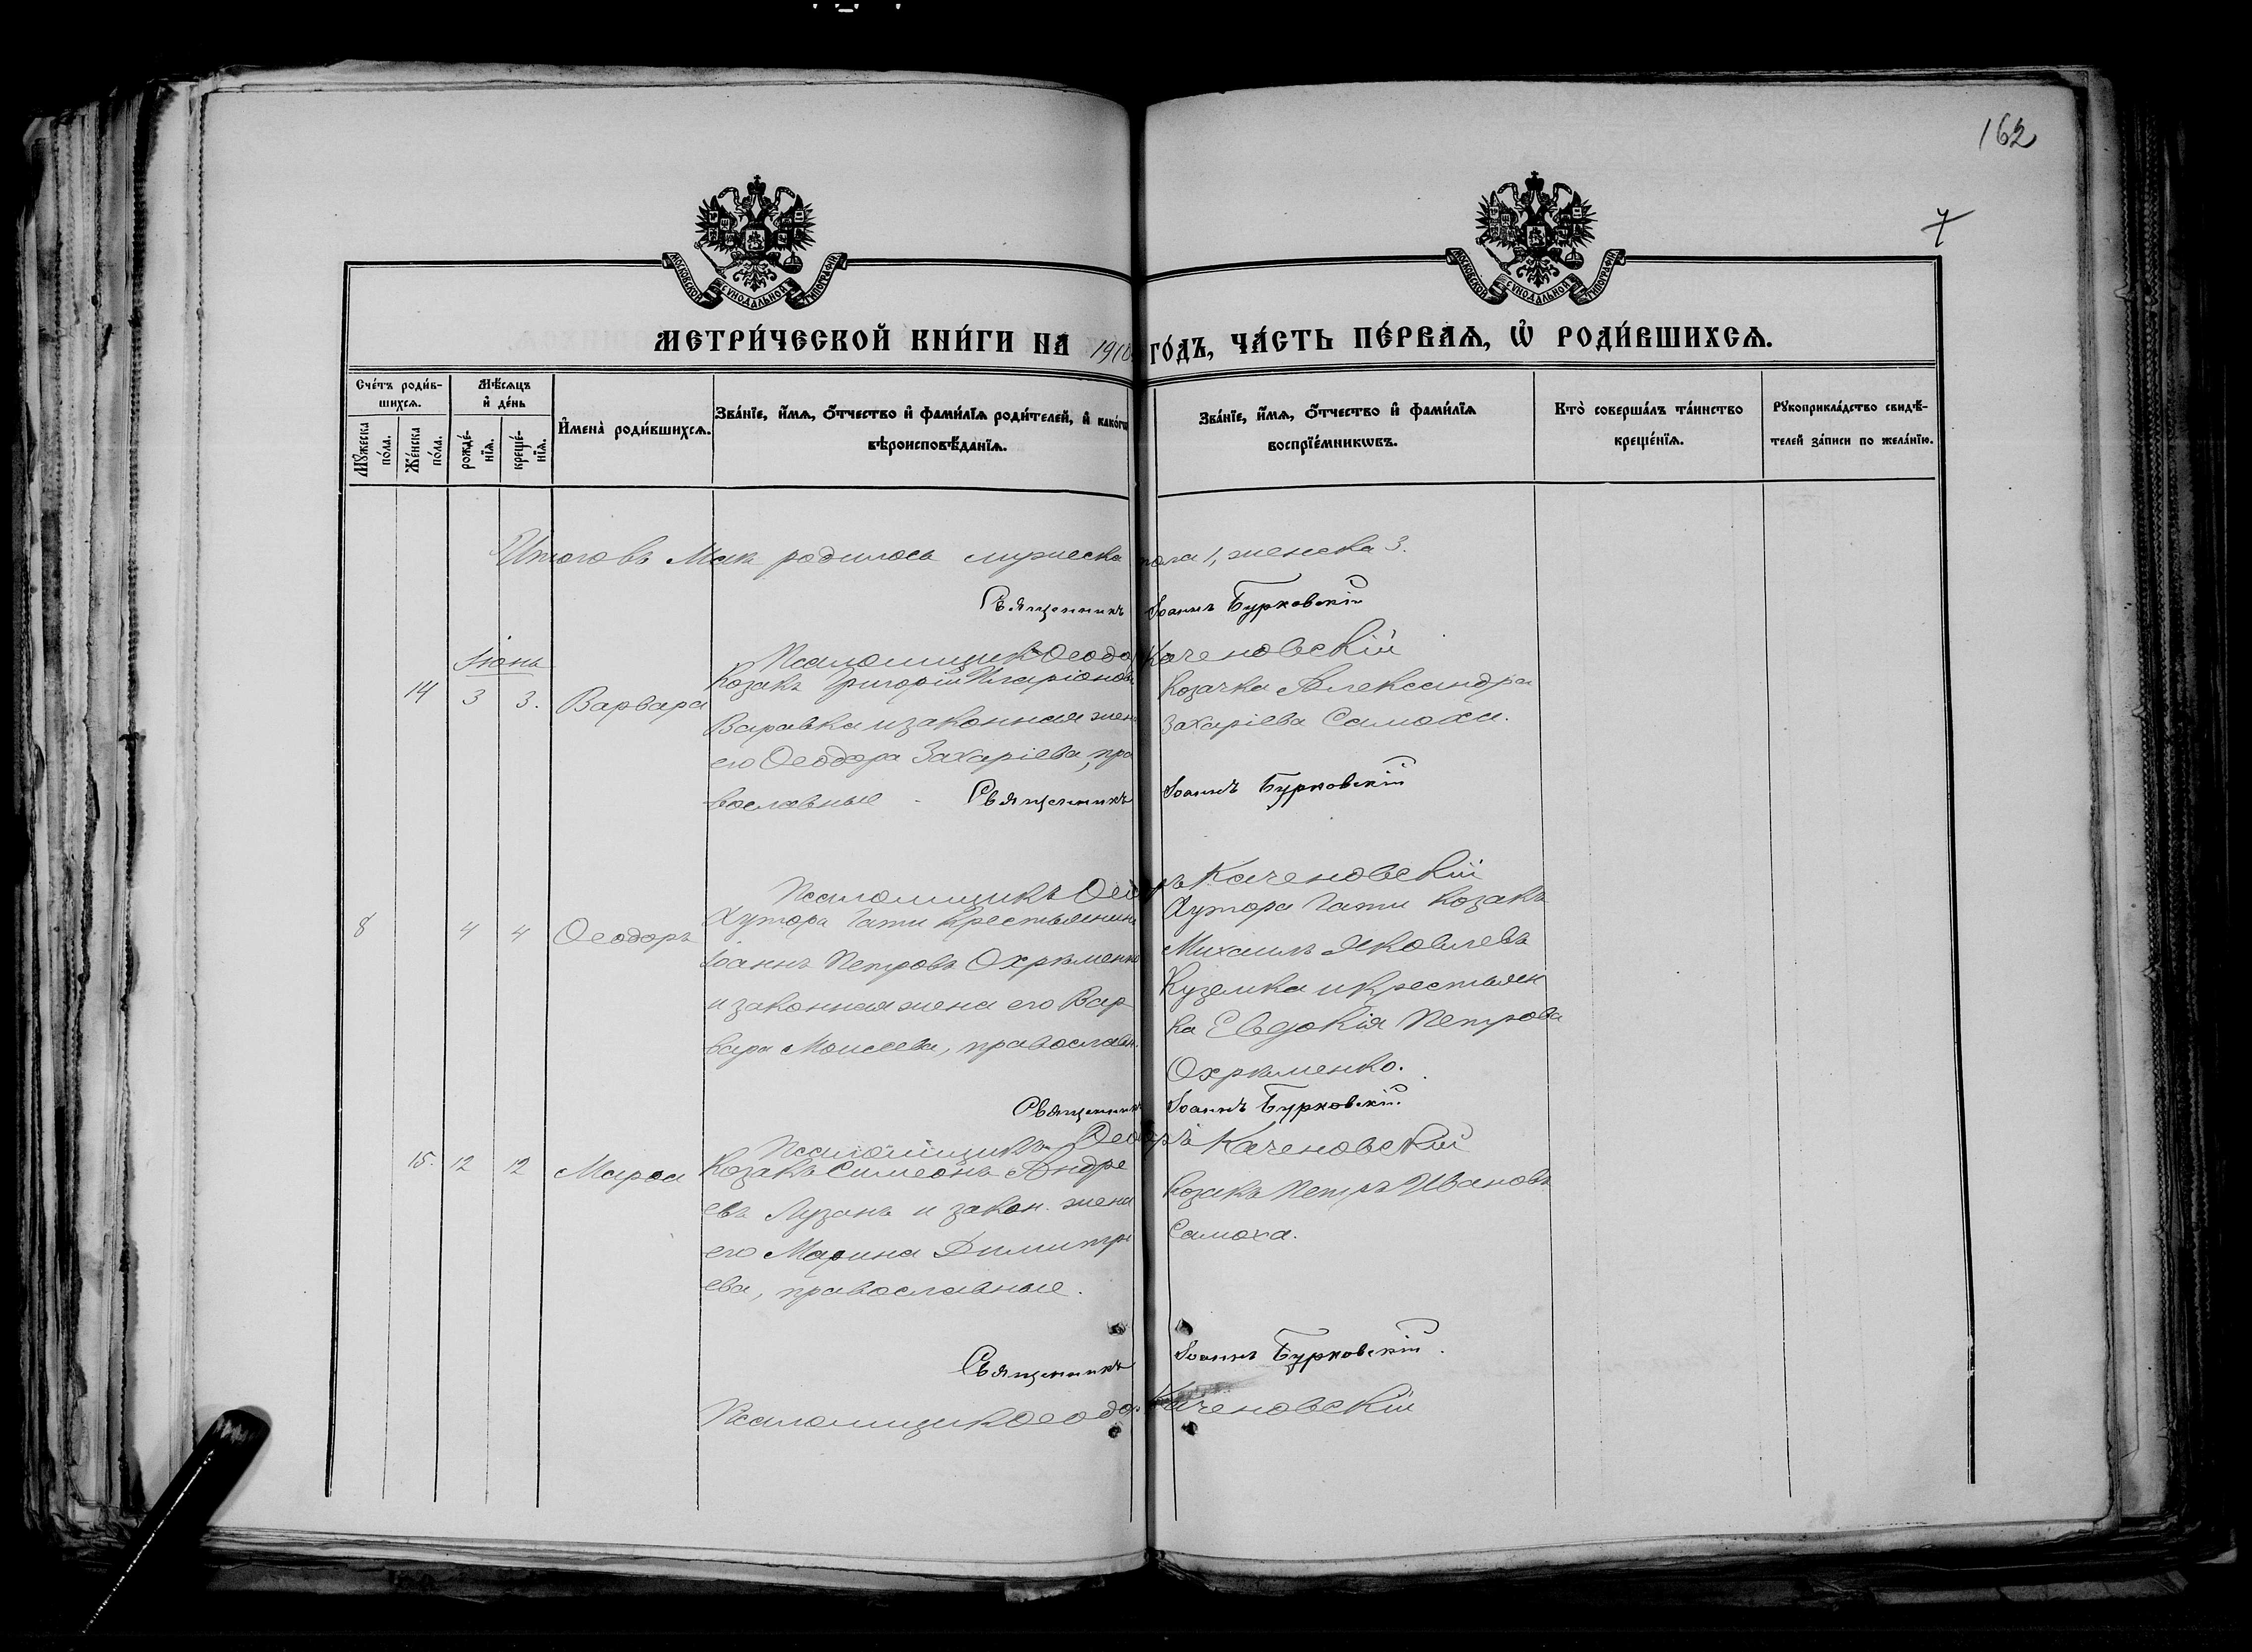 162
7
МОСКОВСКОЙ СѴНОДАЛЬНОЙ ТИПОГРАФІИ
МОСКОВСКОЙ СѴНОДАЛЬНОЙ ТИПОГРАФІИ
МЕТРИ́ЧЕСКОЙ КНИ́ГИ НА 1910 ГО́ДЪ, ЧА́СТЬ ПЕ́РВАѦ, Ѡ҆ РОДИ́ВШИХСѦ.
Сче́тъ роди́в-
шихсѧ.
Мꙋ́жеска по́ла.
Же́нска по́ла.
Мѣ́сѧцъ
и҆ де́нь
рожде́-
нїѧ.
креще́-
нїѧ.
И҆мена̀ роди́вшихсѧ.
Зва́нїе, и҆́мѧ, ѻ҆́тчество и҆ фами́лїѧ роди́телей, и҆ како́гѡ
вѣроисповѣ́данїѧ.
Зва́нїе, и҆́мѧ, ѻ҆́тчество и҆ фами́лїѧ
воспрїе́мникѡвъ.
Кто̀ соверша́лъ та́инство
креще́нїѧ.
Рꙋкоприкла́дство свидѣ́-
телей за́писи по жела́нїю.
Итого въ Маѣ родилось мужеска пола 1, женска 3.
Священникъ Іоаннъ Бурковскій
Псаломщикъ Ѳеодоръ Каченовскій
Іюнь
14 3 3. Варвара
Козакъ Григорій Иларіоновъ
Варавка и законная жена
его Ѳеодора Захаріева, пра
вославные
Козачка Александра
Захаріева Самоха.
Священникъ Іоаннъ Бурковскій
Псаломщикъ Ѳеодоръ Каченовскій
8 4 4 Ѳеодоръ
Хутора Гати крестьянинъ
Іоаннъ Петровъ Охрименко
и законная жена его Вар
вара Моисеева, православн.
Хутора Гати козакъ
Михаилъ Яковлевъ
Куземка и крестьян
ка Евдокія Петрова
Охрименко.
Священникъ Іоаннъ Бурковскій
Псаломщикъ Ѳеодоръ Каченовскій
15. 12 12 Марѳа
Козакъ Симеонъ Андре
евъ Лузанъ и закон. жена
его Марина Димитрі
ева, православные.
Козакъ Петръ Ивановъ
Самоха.
Священникъ Іоаннъ Бурковскій.
Псаломщикъ Ѳеодоръ Каченовскій